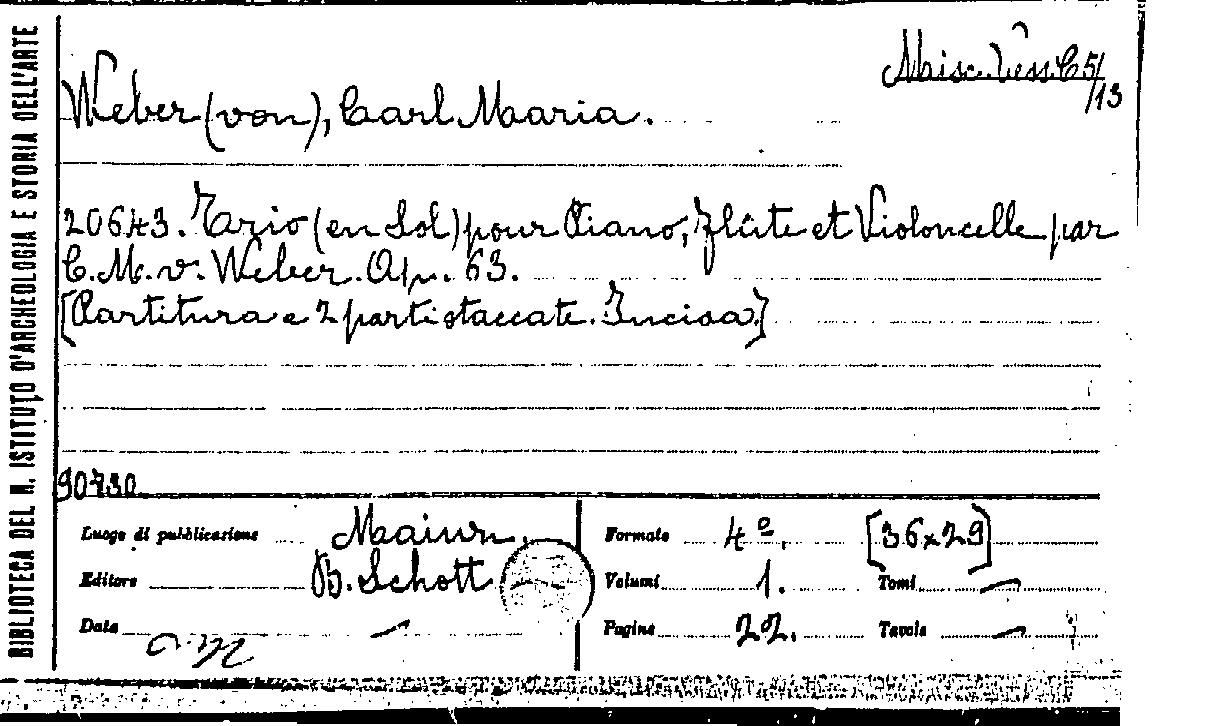 BIBLIOTECA DEL R. ISTITUTO D'ARCHEOLOGIA E STORIA DELL'ARTE
Misc. Vess. C 5/13
Weber (von), Carl Maria.
20643. Trio (en Sol) pour Piano, flûte et Violoncelle par
C. M. v. Weber. Op. 63.
[Partitura e 2 parti staccate. Incisa.]
90730
Luogo di pubblicazione Mainz. Formato 4º. [36×29]
Editore B. Schott Volumi 1. Tomi —
Data — Pagine 22. Tavole —